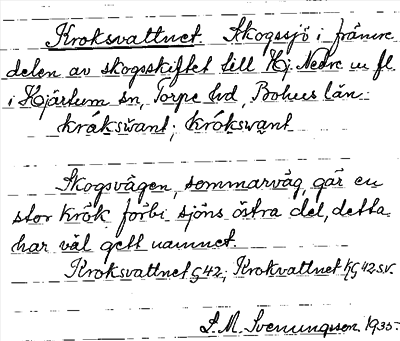 Kroksvattnet. Skogssjö i främre
delen av skogsskiftet till Hj. Nedre m fl.
i Hjärtum sn, Torpe hd, Bohus län:
krókswant; krókswant
Skogsvägen, sommarväg, går en
stor krok förbi sjöns östra del, detta
har väl gett namnet.
Kroksvattnet G42; Krokvattnet hG42sv.
S. M. Svenungsson. 1935.